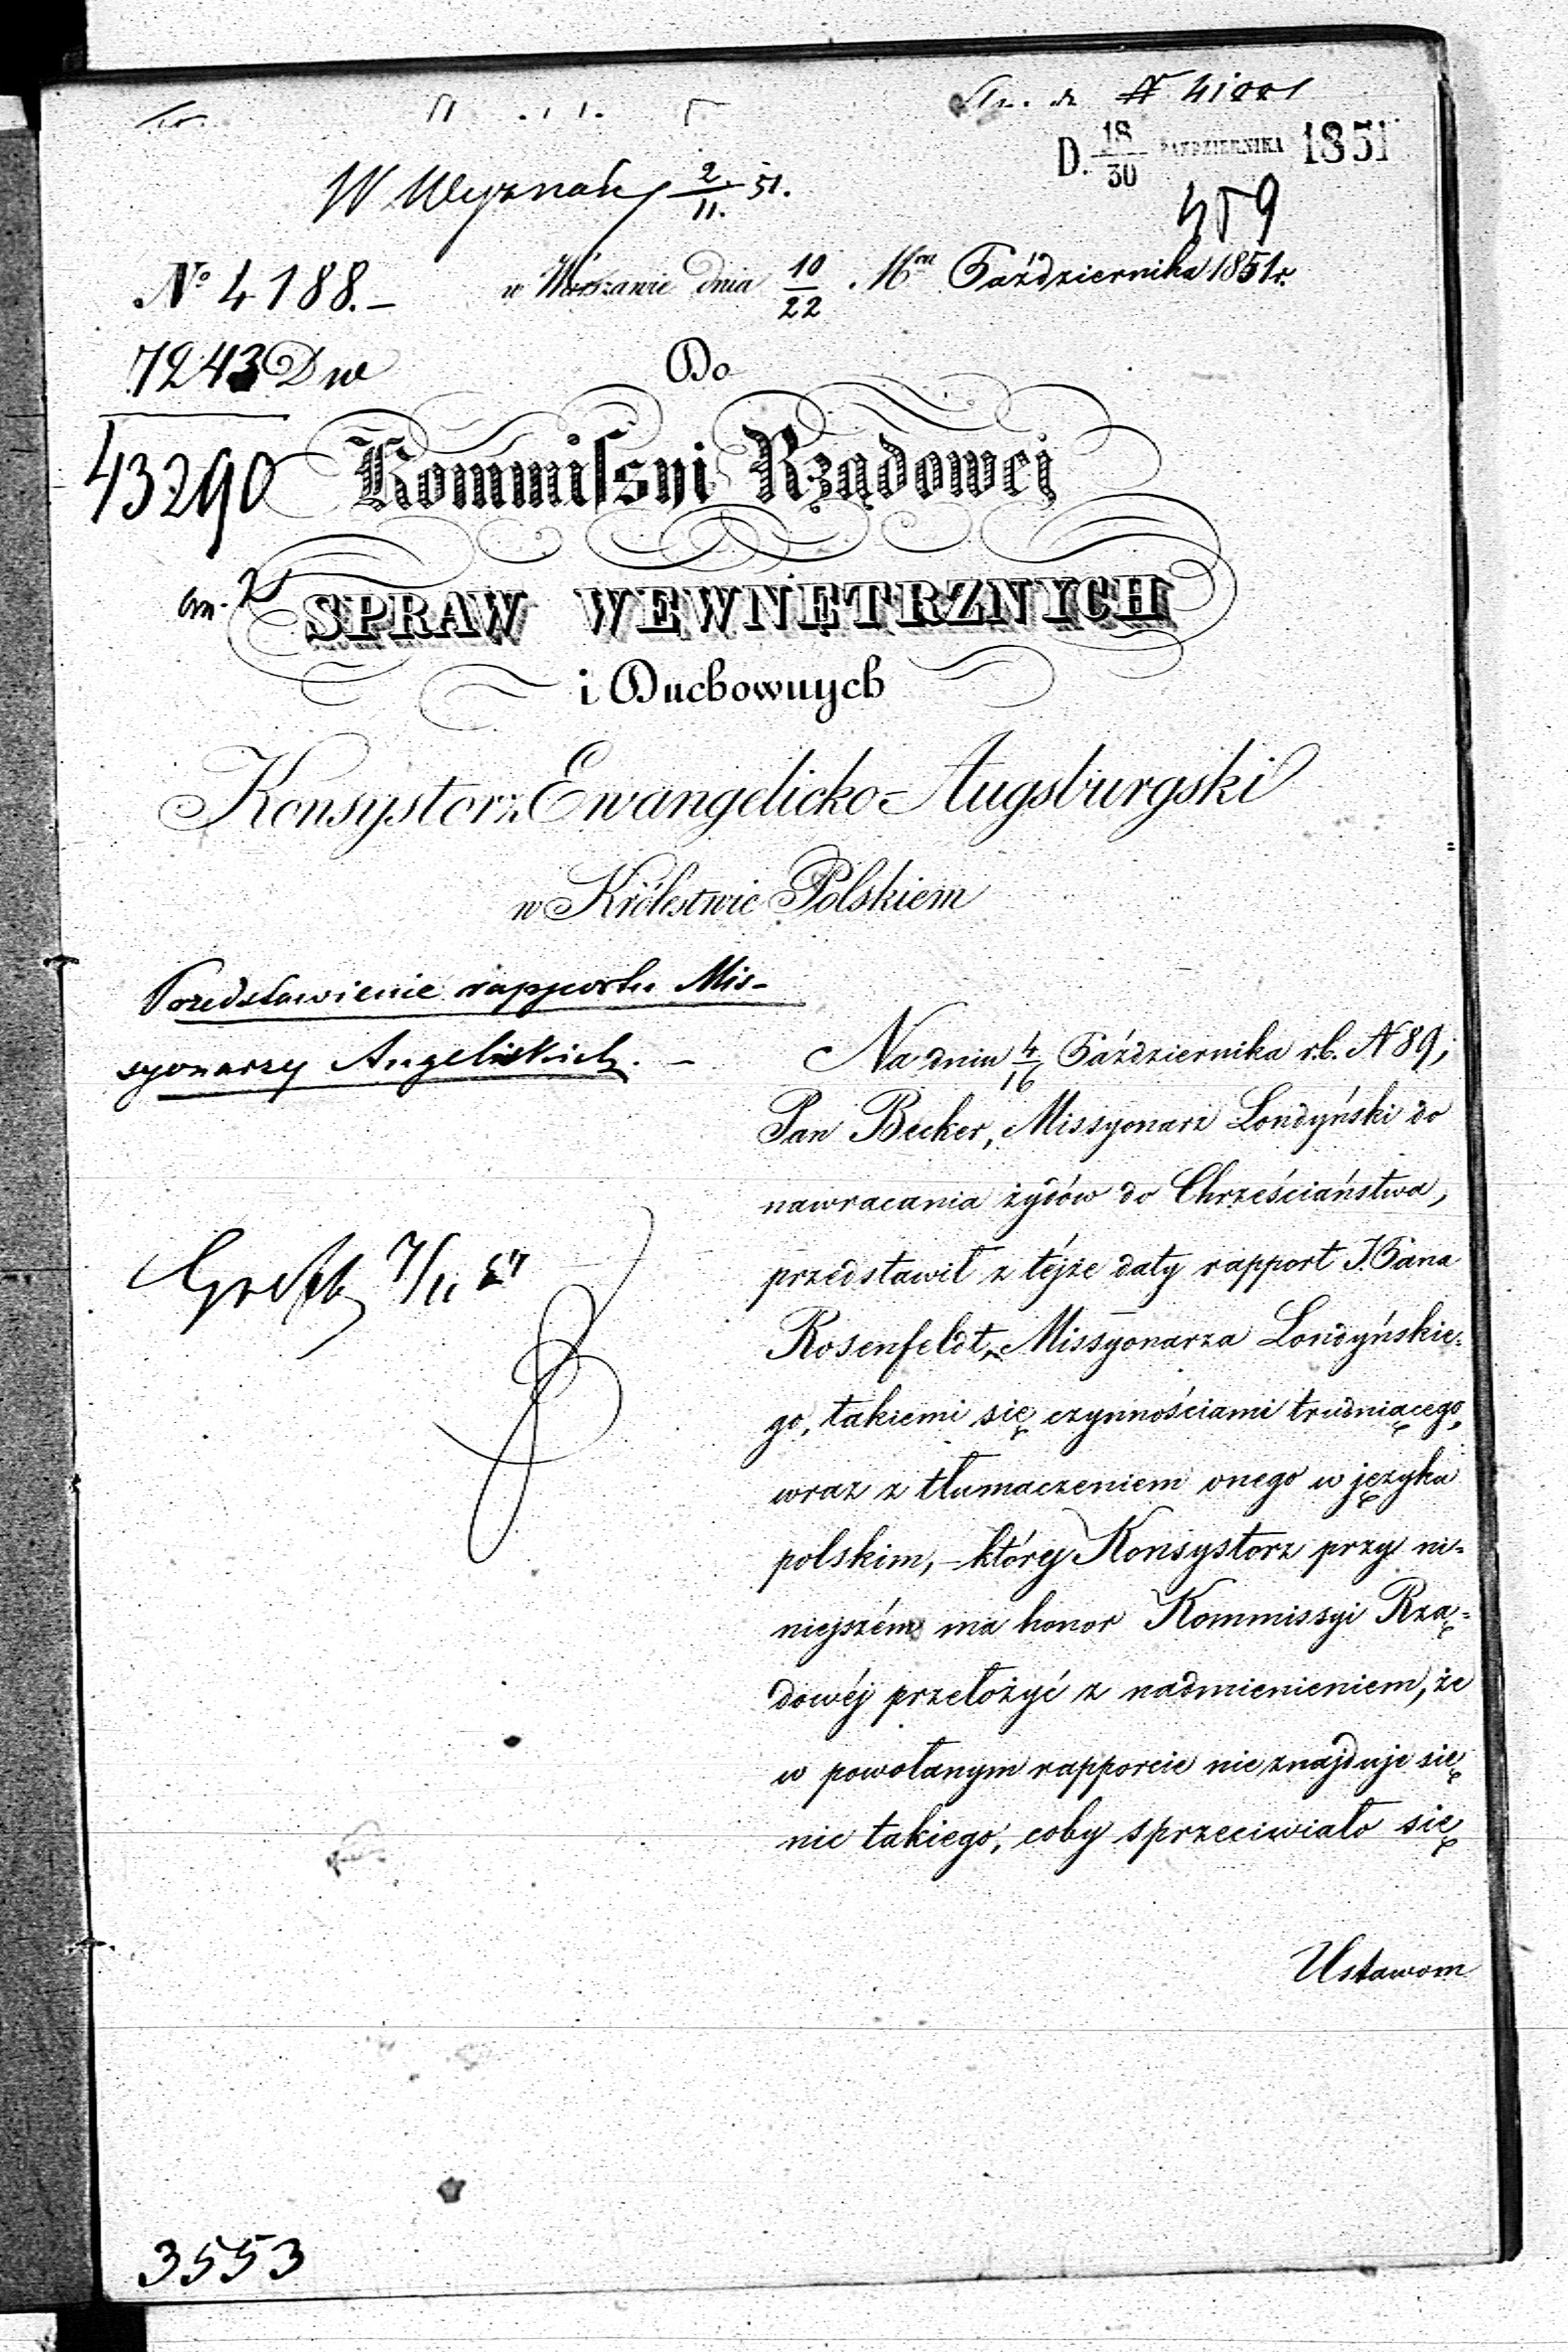 D. 18/30 PAZDZIERNIKA 1851
459
W Wyznań 2/11. 51.
№ 4188.-
w Warszawie dnia 10/22 Mca Października 1851 r.
7243 Dw
Do
43290
Kommissyi Rządowej
SPRAW WEWNĘTRZNYCH
i Duchownych
Konsystorz Ewangelicko-Augsburgski
w Królestwie Polskiem
Przedstawienie rapportu Mis-
syonarzy Angelskich. -
Na dniu 4/16 Października r.b. N 89,
Pan Becker, Missyonarz Londyński do
nawracania żydów do Chrześciaństwa,
przedstawił z téjże daty rapport J. Pana
Rosenfeldt, Missyonarza Londyńskie-
go, takiemi się czynnościami trudniącego,
wraz z tłumaczeniem onego w języku
polskim, - który Konsystorz przy ni-
niejszém ma honor Kommissyi Rzą-
dowéj przełożyć z nadmienieniem, że
w powołanym rapporcie nie znajduje się
nic takiego, coby sprzeciwiało się
Ustawom
3553